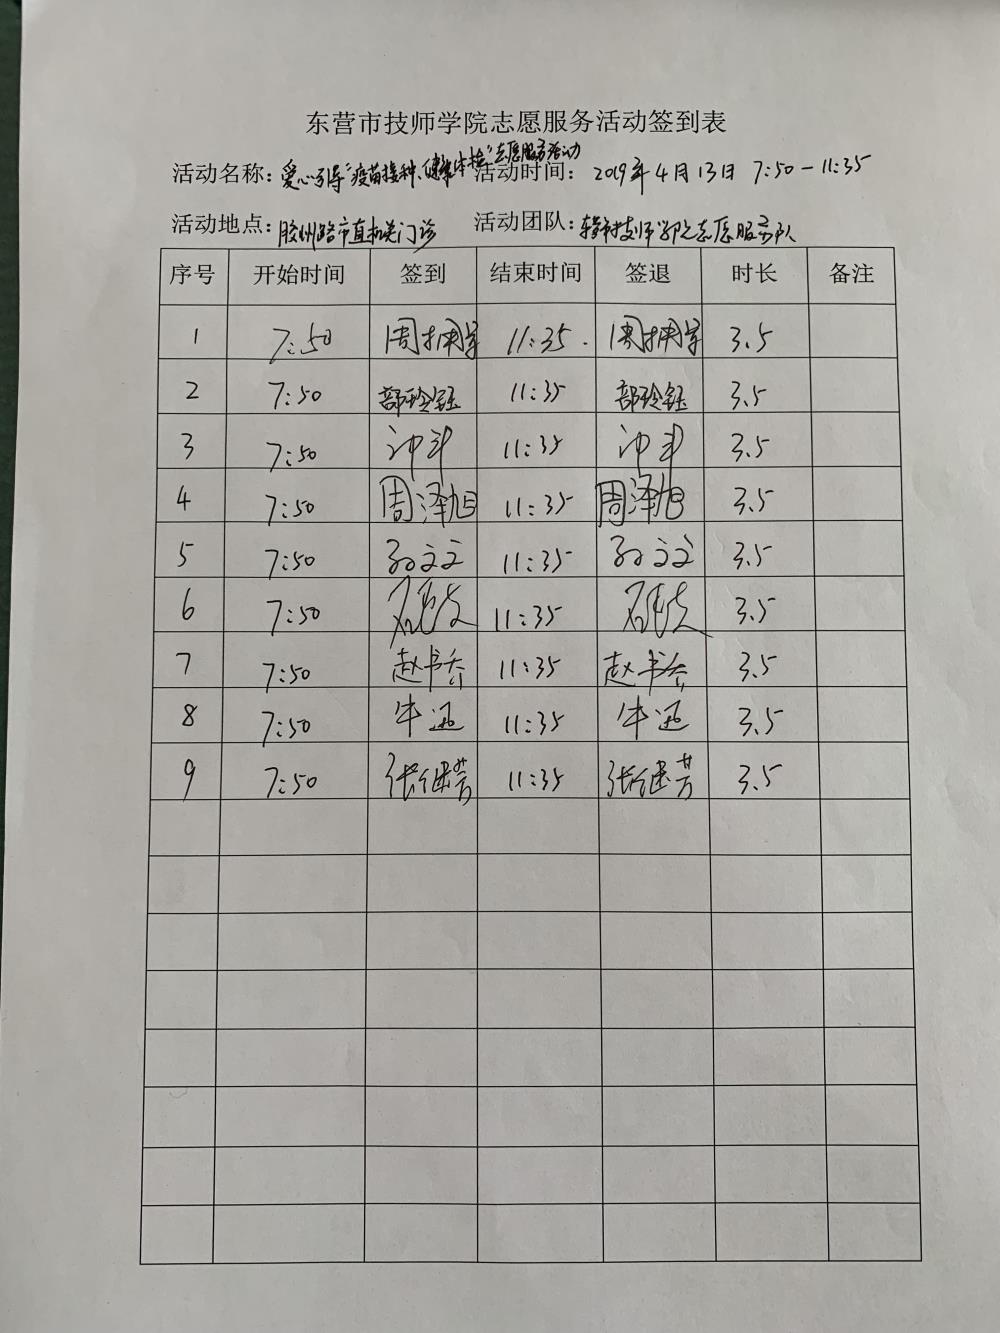 东营市技师学院志愿服务活动签到表
活动名称：爱心引导“疫苗接种、健康体检”志愿服务活动 活动时间：2019年4月13日 7:50—11:35
活动地点：胶州路市直机关门诊 活动团队：技师学院志愿服务队
序号 开始时间 签到 结束时间 签退 时长 备注
1 7:50 11:35. 3.5
2 7:50 部玲钰 11:35 部玲钰 3.5
3 7:50 11:35 3.5
4 7:50 周泽旭 11:35 周泽旭 3.5
5 7:50 孙文文 11:35 孙文文 3.5
6 7:50 11:35 3.5
7 7:50 赵书香 11:35 赵书香 3.5
8 7:50 牛迅 11:35 牛迅 3.5
9 7:50 张继芳 11:35 张继芳 3.5